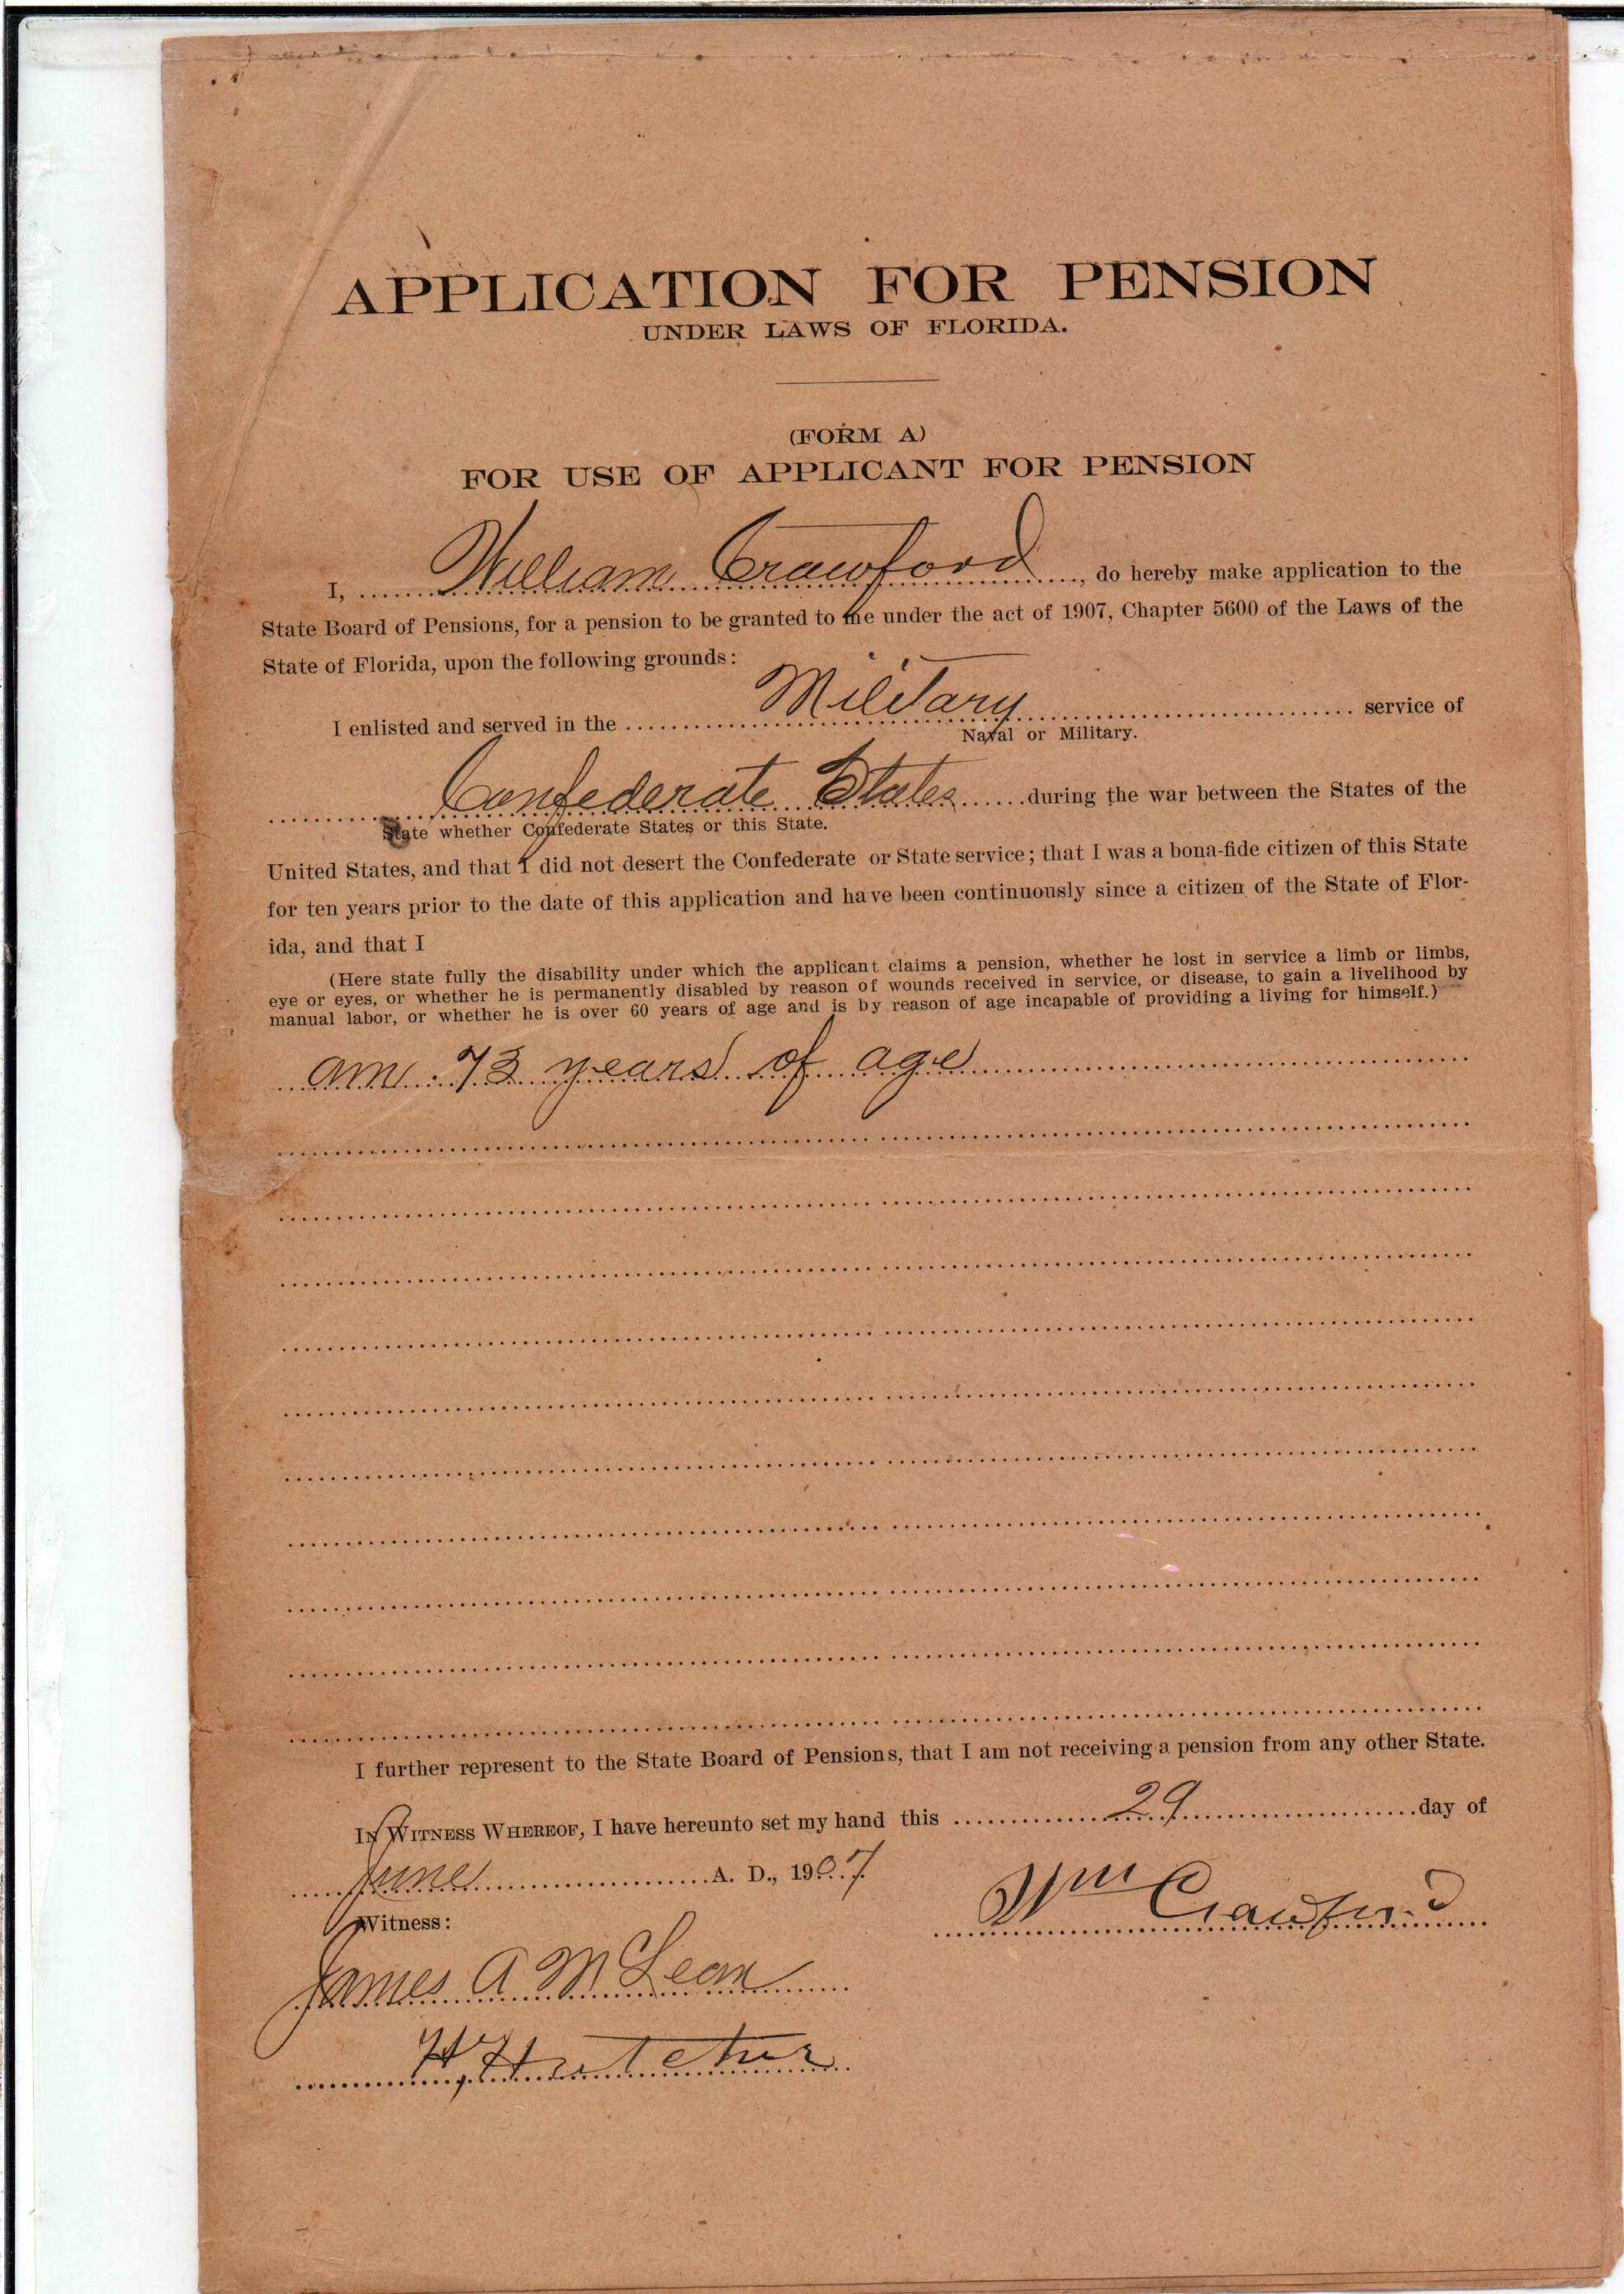 APPLICATION FOR PENSION
UNDER LAWS OF FLORIDA.
(FORM A)
FOR USE OF APPLICANT FOR PENSION
I, William Crawford, do hereby make application to the
State Board of Pensions, for a pension to be granted to me under the act of 1907, Chapter 5600 of the Laws of the
State of Florida, upon the following grounds:
I enlisted and served in the Military service of
Naval or Military.
Confederate States during the war between the States of the
State whether Confederate States or this State.
United States, and that I did not desert the Confederate or State service; that I was a bona-fide citizen of this State
for ten years prior to the date of this application and have been continuously since a citizen of the State of Flor-
ida, and that I
(Here state fully the disability under which the applicant claims a pension, whether he lost in service a limb or limbs,
eye or eyes, or whether he is permanently disabled by reason of wounds received in service, or disease, to gain a livelihood by
manual labor, or whether he is over 60 years of age and is by reason of age incapable of providing a living for himself.)
am 73 years of age
I further represent to the State Board of Pensions, that I am not receiving a pension from any other State.
IN WITNESS WHEREOF, I have hereunto set my hand this 29 day of
June A. D., 1907
Wm Crawford
Witness:
James A McLean